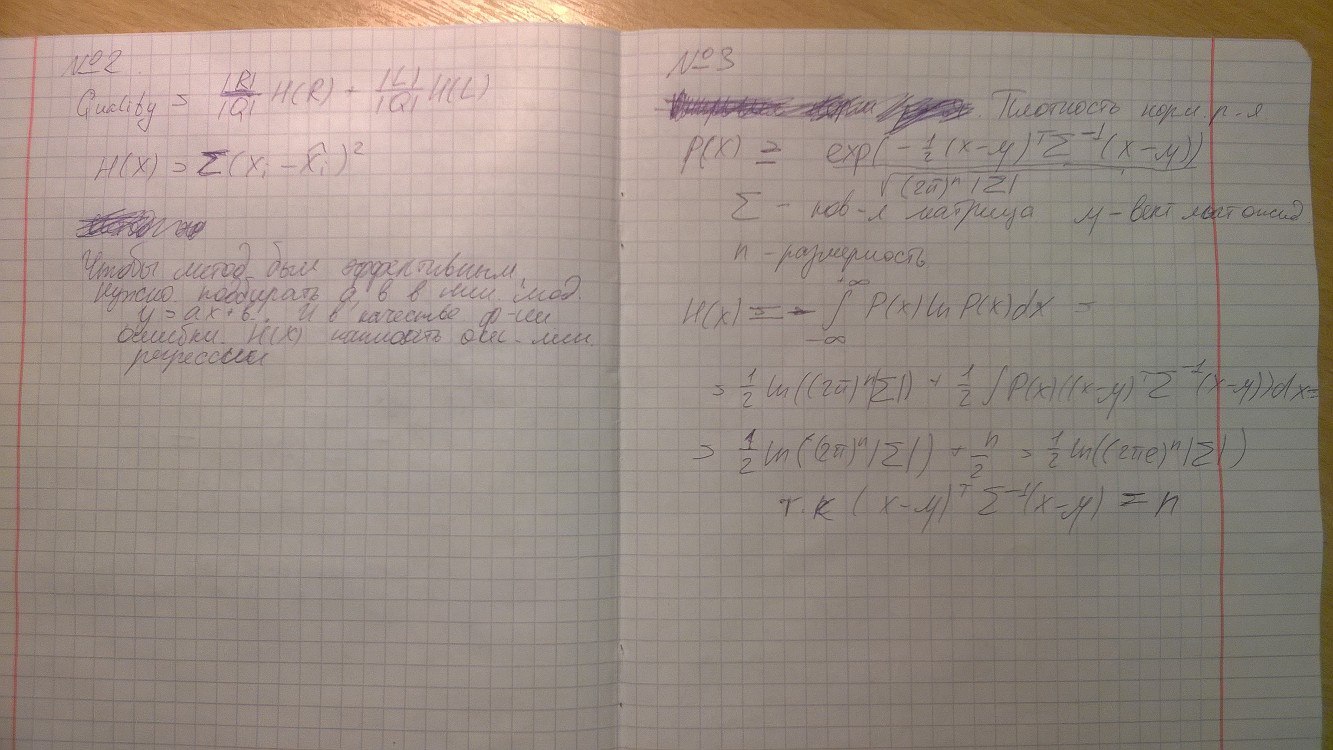 №2
Quality = |R|/|Q| H(R) + |L|/|Q| H(L)
H(X) = Σ(xᵢ - x̂ᵢ)²
Чтобы метод был эффективным,
нужно подбирать a, b в лин. мод.
y = ax+b. И в качестве ф-ции
ошибки H(X) написать ош-
регрессии
№3
Плотность норм. р-я
P(x) = exp(-1/2 (x-μ)ᵀ Σ⁻¹ (x-μ)) / √((2π)ⁿ |Σ|)
Σ - ков-я матрица μ - вект мат ожид
n - размерность
H(x) = - ∫_{-∞}^{+∞} P(x) ln P(x) dx =
= 1/2 ln((2π)ⁿ|Σ|) + 1/2 ∫ P(x)((x-μ)ᵀ Σ⁻¹ (x-μ))dx =
= 1/2 ln((2π)ⁿ|Σ|) + n/2 = 1/2 ln((2πe)ⁿ|Σ|)
т.к (x-μ)ᵀ Σ⁻¹(x-μ) = n